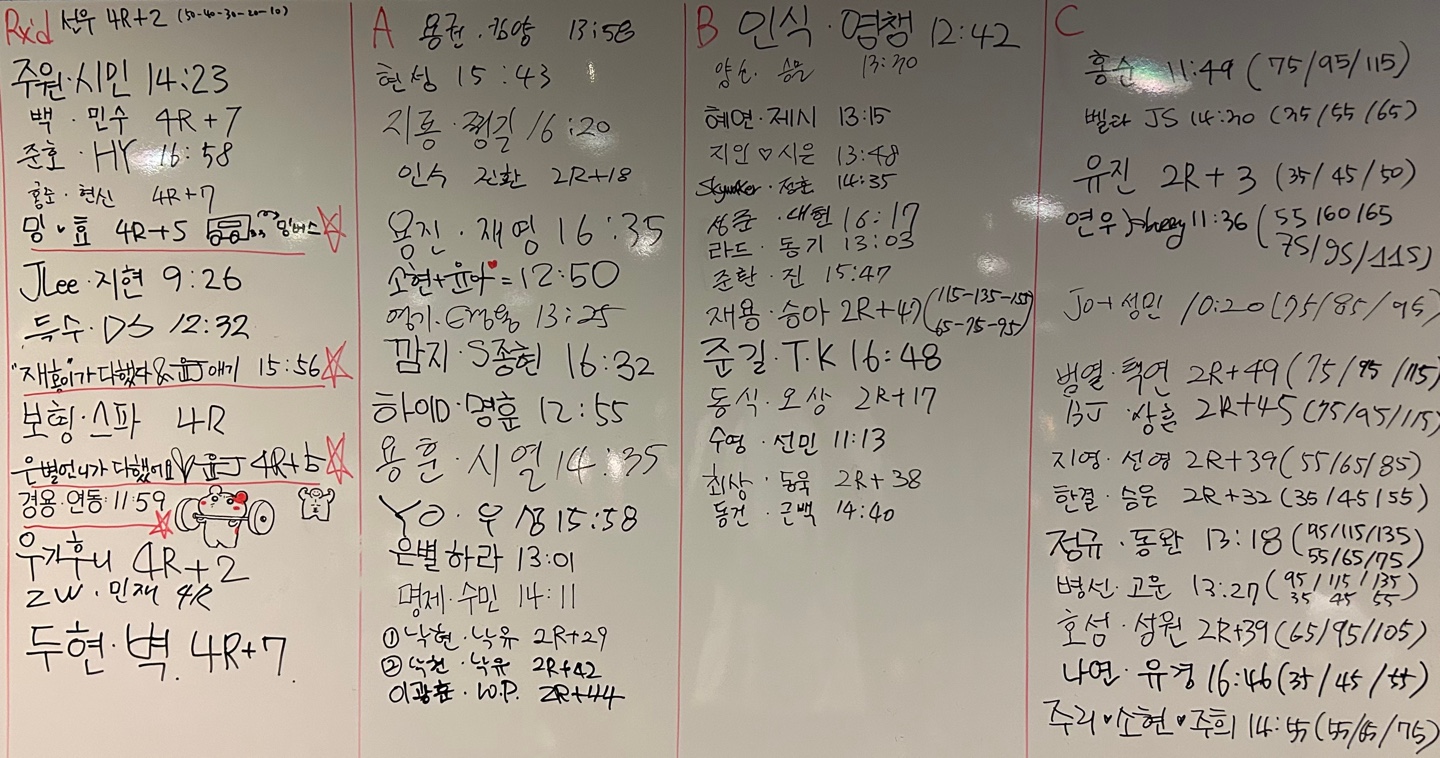 Rx'd 선우 4R+2 (50-40-30-20-10)
주원·시민 14:23
백·민수 4R+7
준호·HY 16:58
홍조·현신 4R+7
밍♥효 4R+5 밍버스
JLee·지현 9:26
득수·DS 12:32
"재홍이가 다했다 & 윤J 얘기 15:56
보형·스파 4R
은별언니가 다했어요♡윤J 4R+5
경용·연동:11:59
우가후니 4R+2
ZW·민재 4R
두현·벽 4R+7
A 용권 · 13:58
현성 15:43
지롱·펑길 16:20
인수 진환 2R+18
용진·재영 16:35
소현+윤아♥=12:50
영기· 13:25
깜지·S종현 16:32
하이D·명훈 12:55
용훈·시열 14:35
YO·우성 15:58
은별하라 13:01
명제·수민 14:11
① 낙현·낙유 2R+29
② 낙현·낙유 2R+42
이광훈·W.P. 2R+44
B 인식·영챙 12:42
13:20
혜연·제시 13:15
지인♡시은 13:48
Skywalker· 14:35
성준·대현 16:17
라드·동기 13:03
준탁·진 15:47
재용·승아 2R+47 (115-135-155
65-75-95)
준길·T.K 16:48
동식·오상 2R+17
수영·선민 11:13
최상·동욱 2R+38
동건·근백 14:40
C
홍순 11:49 (75/95/115)
벨라 JS 14:20 (35/55/65)
유진 2R+3 (35/45/50)
연우 11:36 (55/60/65
75/95/115)
Jo+성민 10:20 (75/85/95)
범열·택연 2R+49 (75/95/115)
BJ·상훈 2R+45 (75/95/115)
지영·선영 2R+39 (55/65/85)
한결·승운 2R+32 (35/45/55)
정규·동완 13:18 (95/115/135
55/65/75)
병선·고운 13:27 (95/115/135
35 45 55)
호섬·성원 2R+39 (65/95/105)
나연·유경 16:46 (35/45/55)
주리♥소현♥주희 14:55 (55/65/75)